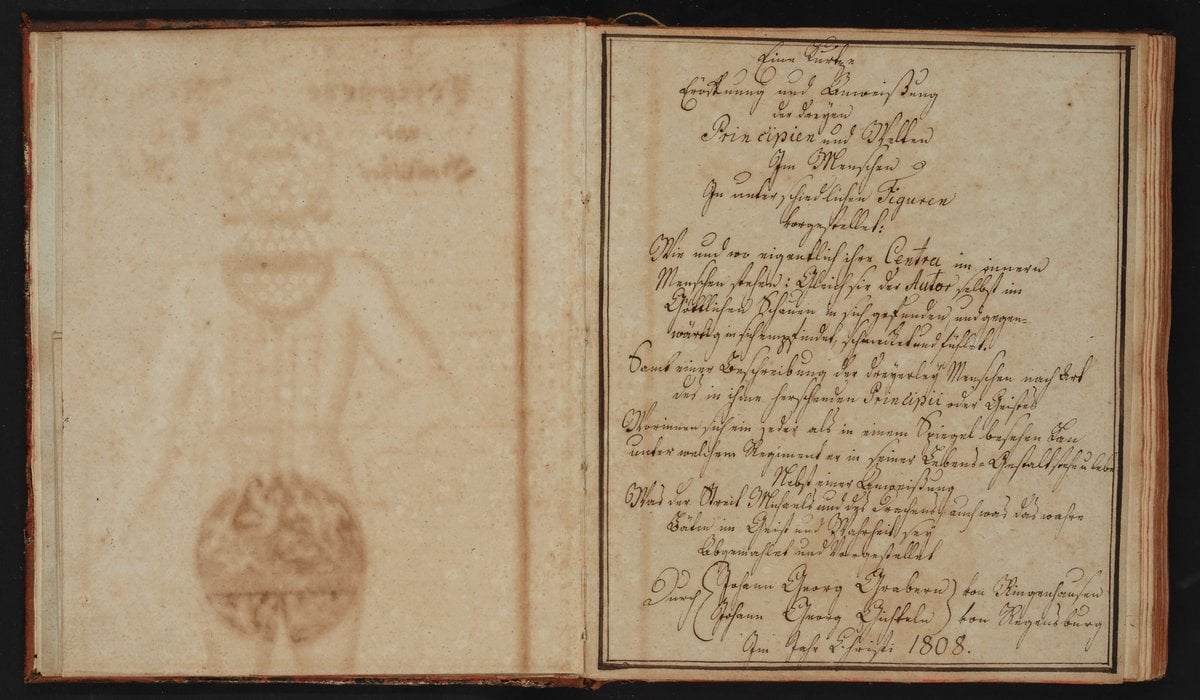 Eine Kurtze
Eröffnung und Anweißung
der dreyen
Principien und Welten
Im Menschen
In unterschiedlichen Figuren
vorgestellet:
Wie und wo eigentlich ihre Centra im innern
Menschen stehen: Gleich sie der Autor selbst im
Göttlichen Schauen in sich gefunden, und gegen-
wärtig in sich empfindet, schmecket und fühlet.
Samt einer Beschreibung der dreyerley Menschen nach Art
des in ihme herschenden Principii oder Geistes
Worinnen sich ein jeder als in einem Spiegel besehen kan
unter welchem Regiment er in seiner Lebens-Gestalt stehe u lebe
Nebst einer Anweißung
Was der Streit Michaels und des Drachens, auch was das wahre
Bäten im Geist und Wahrheit sey
Abgemahlet und Vorgestellet
Durch (Johann Georg Grabern) von Ringenhausen
(Johann Georg Gichteln) von Regensburg
Im Jahr Christi 1808.